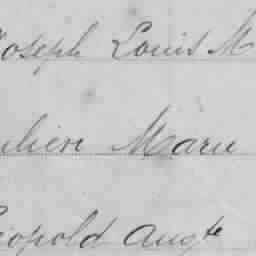 Joseph Louis M
ulien Marie
Leopold Augte